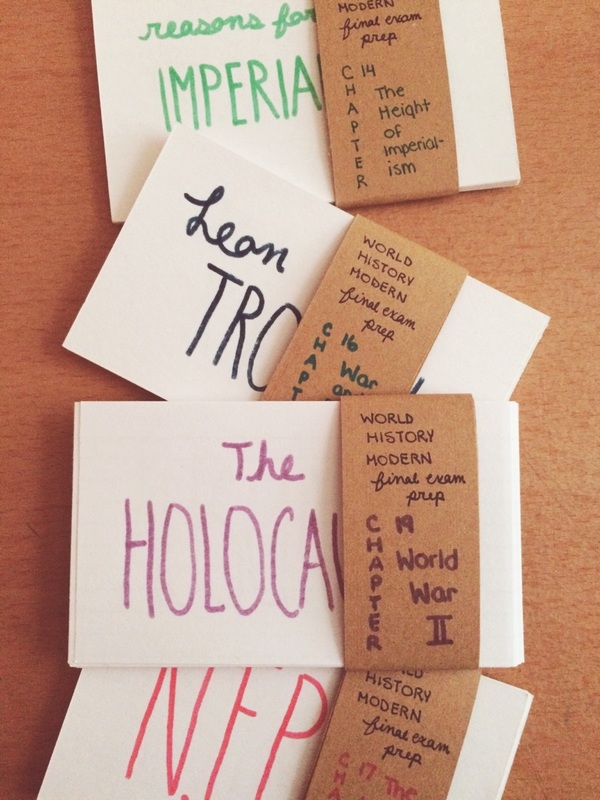 reasons for
IMPERIA
MODERN
final exam
prep
CHAPTER
14
The
Height
of
Imperial-
ism
Leon
TRO
WORLD
HISTORY
MODERN
final exam
prep
CHAPT
16
War
The
HOLOCAU
WORLD
HISTORY
MODERN
final exam
prep
CHAPTER
19
World
War
II
N.E.P
HISTORY
MODERN
final exam
prep
CHA
17 The